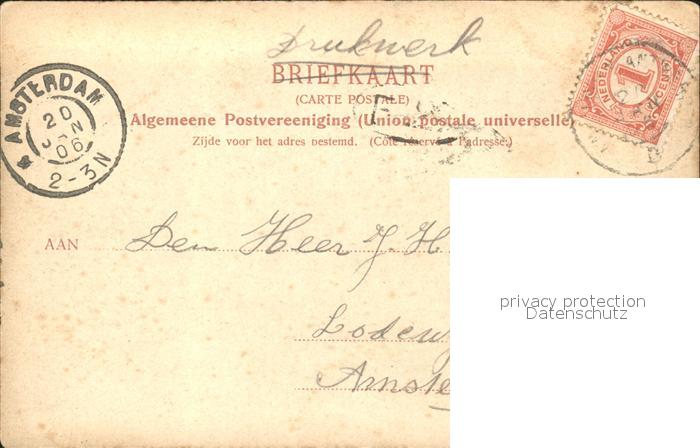 Drukwerk
BRIEFKAART
(CARTE POSTALE)
Algemeene Postvereeniging (Union postale universelle
Zijde voor het adres bestemd. (Côté réservé à l'adresse.)
AMSTERDAM
20
JAN
06
2-3N
NEDERLAND
1
CENT
AAN Den Heer J. H
Lodew
Amste
privacy protection
Datenschutz